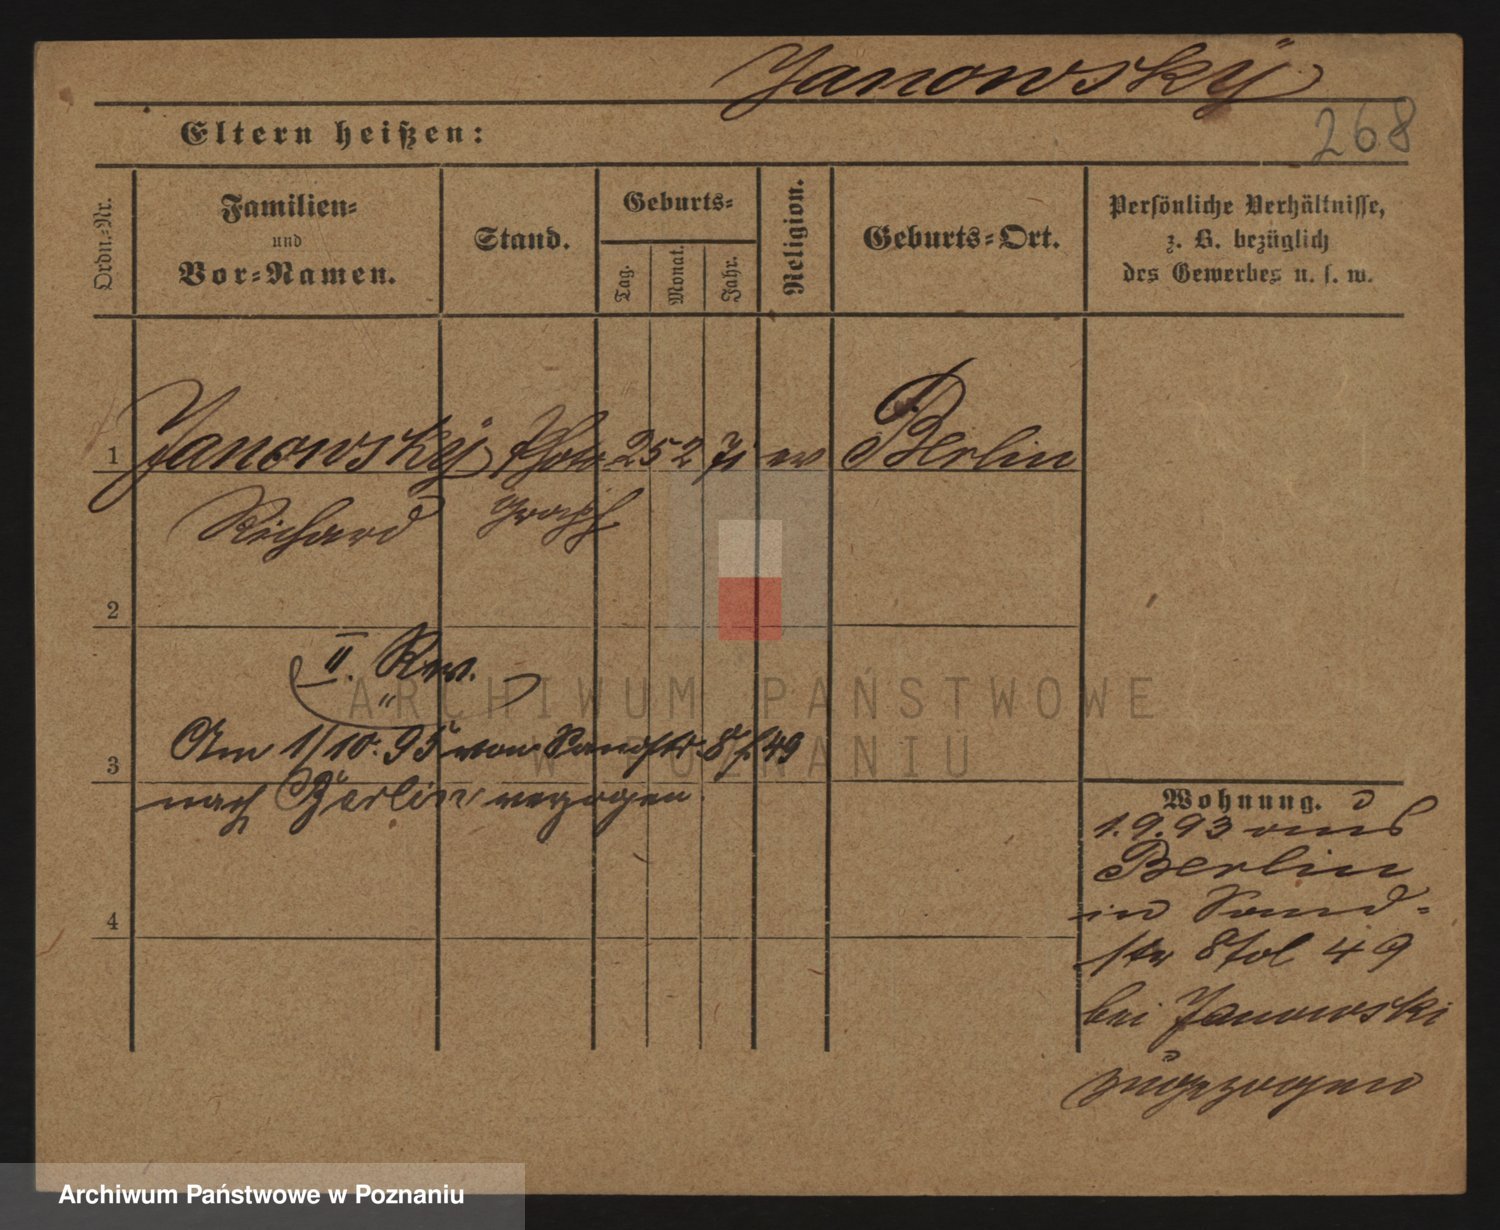 Janowsky
268
Eltern heißen:
Ordn.-Nr.
Familien-
und
Vor-Namen.
Stand.
Geburts-
Tag.
Monat.
Jahr.
Religion.
Geburts-Ort.
Persönliche Verhältnisse,
z. B. bezüglich
des Gewerbes u. s. w.
1 Janowsky Photo 25 2 71 ev Berlin
Richard graph
2
II. Rev.
Am 1/10. 95 von Sandstr. 8 f. 49
3
nach Berlin verzogen.
4
Wohnung.
1.9.93 aus
Berlin
in Sand-
str 8 fol 49
bei Janowski
zugezogen
ARCHIWUM PAŃSTWOWE
W POZNANIU
Archiwum Państwowe w Poznaniu